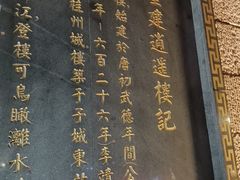 建逍遥樓記
樓始建於唐初武德年間（公
年—六百二十六年）李靖
桂州城樓築于子城東
江登樓可鳥瞰灕水